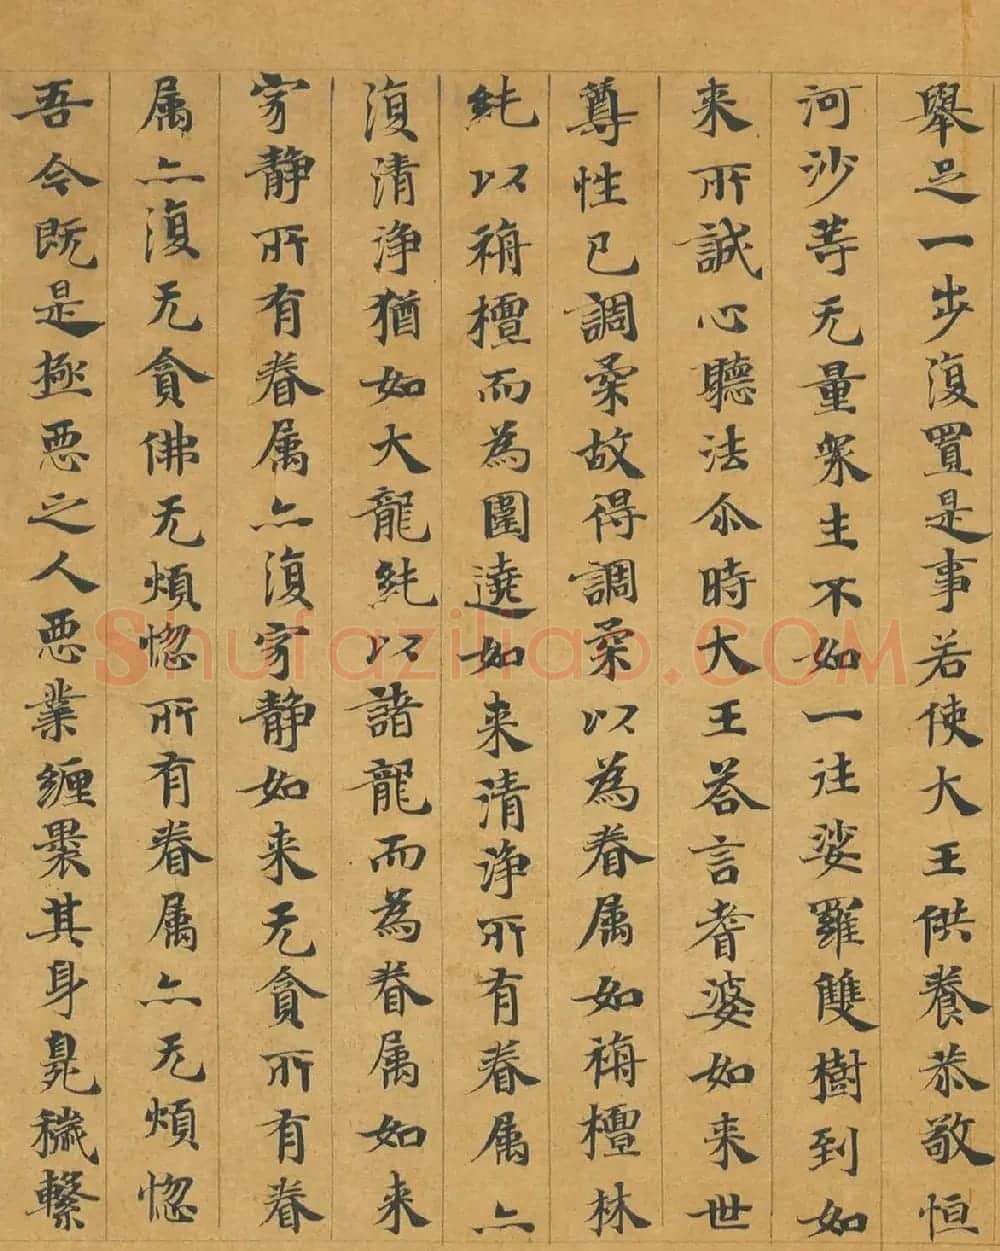 舉足一步復置是事若使大王供養恭敬恒
河沙等无量眾生不如一往娑羅雙樹到如
来所誠心聽法尒時大王荅言耆婆如来世
尊性已調柔故得調柔以為眷属如栴檀林
純以栴檀而為圍遶如来清淨所有眷属亦
復清淨猶如大龍純以諸龍而為眷属如来
寂静所有眷属亦復寂静如来无貪所有眷
属亦復无貪佛无煩惱所有眷属亦无煩惱
吾今既是極惡之人惡業纏裹其身臰穢繫
Shufaziliao.COM